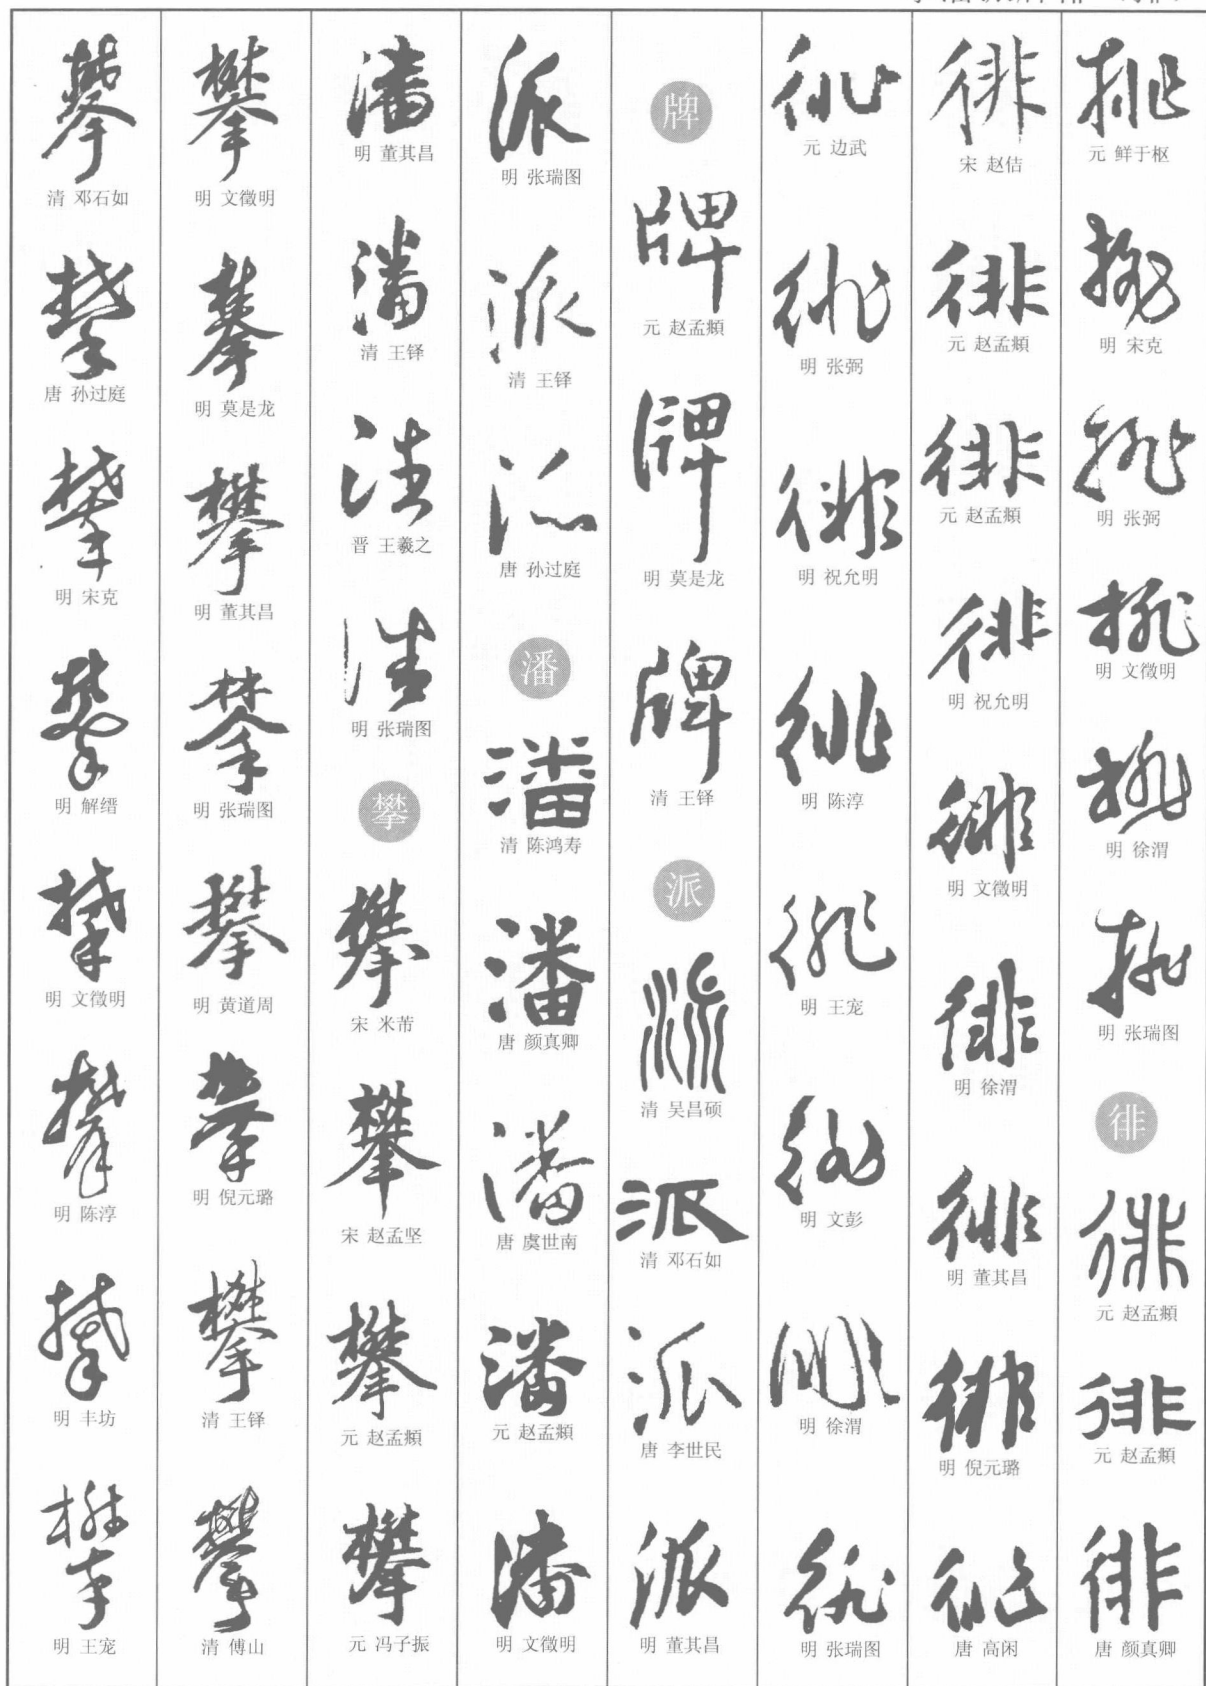 排
元 鲜于枢
排
明 宋克
排
明 张弼
排
明 文徵明
排
明 徐渭
排
明 张瑞图
徘
徘
元 赵孟頫
徘
元 赵孟頫
徘
唐 颜真卿
徘
宋 赵佶
徘
元 赵孟頫
徘
元 赵孟頫
徘
明 祝允明
徘
明 文徵明
徘
明 徐渭
徘
明 董其昌
徘
明 倪元璐
徘
唐 高闲
徘
元 边武
徘
明 张弼
徘
明 祝允明
徘
明 陈淳
徘
明 王宠
徘
明 文彭
徘
明 徐渭
徘
明 张瑞图
牌
牌
元 赵孟頫
牌
明 莫是龙
牌
清 王铎
派
派
清 吴昌硕
派
清 邓石如
派
唐 李世民
派
明 董其昌
派
明 张瑞图
派
清 王铎
派
唐 孙过庭
潘
潘
清 陈鸿寿
潘
唐 颜真卿
潘
唐 虞世南
潘
元 赵孟頫
潘
明 文徵明
潘
明 董其昌
潘
清 王铎
潘
晋 王羲之
潘
明 张瑞图
攀
攀
宋 米芾
攀
宋 赵孟坚
攀
元 赵孟頫
攀
元 冯子振
攀
明 文徵明
攀
明 莫是龙
攀
明 董其昌
攀
明 张瑞图
攀
明 黄道周
攀
明 倪元璐
攀
清 王铎
攀
清 傅山
攀
清 邓石如
攀
唐 孙过庭
攀
明 宋克
攀
明 解缙
攀
明 文徵明
攀
明 陈淳
攀
明 丰坊
攀
明 王宠